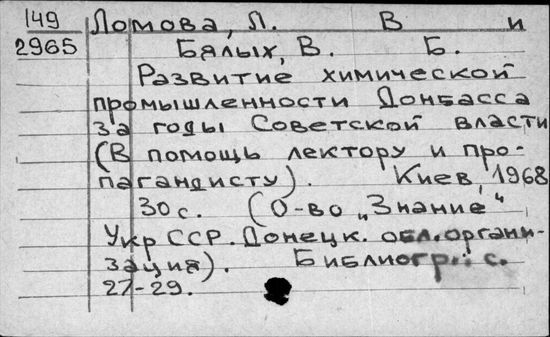 149
2965
Ломова, Л. В и
Бялых, В. Б.
Развитие химической
промышленности Донбасса
за годы Советской власти
(В помощь лектору и про-
пагандисту). Киев, 1968
30 с. (О-во „Знание"
Укр ССР. Донецк. обл. органи-
зация). Библиогр.: с.
27-29.